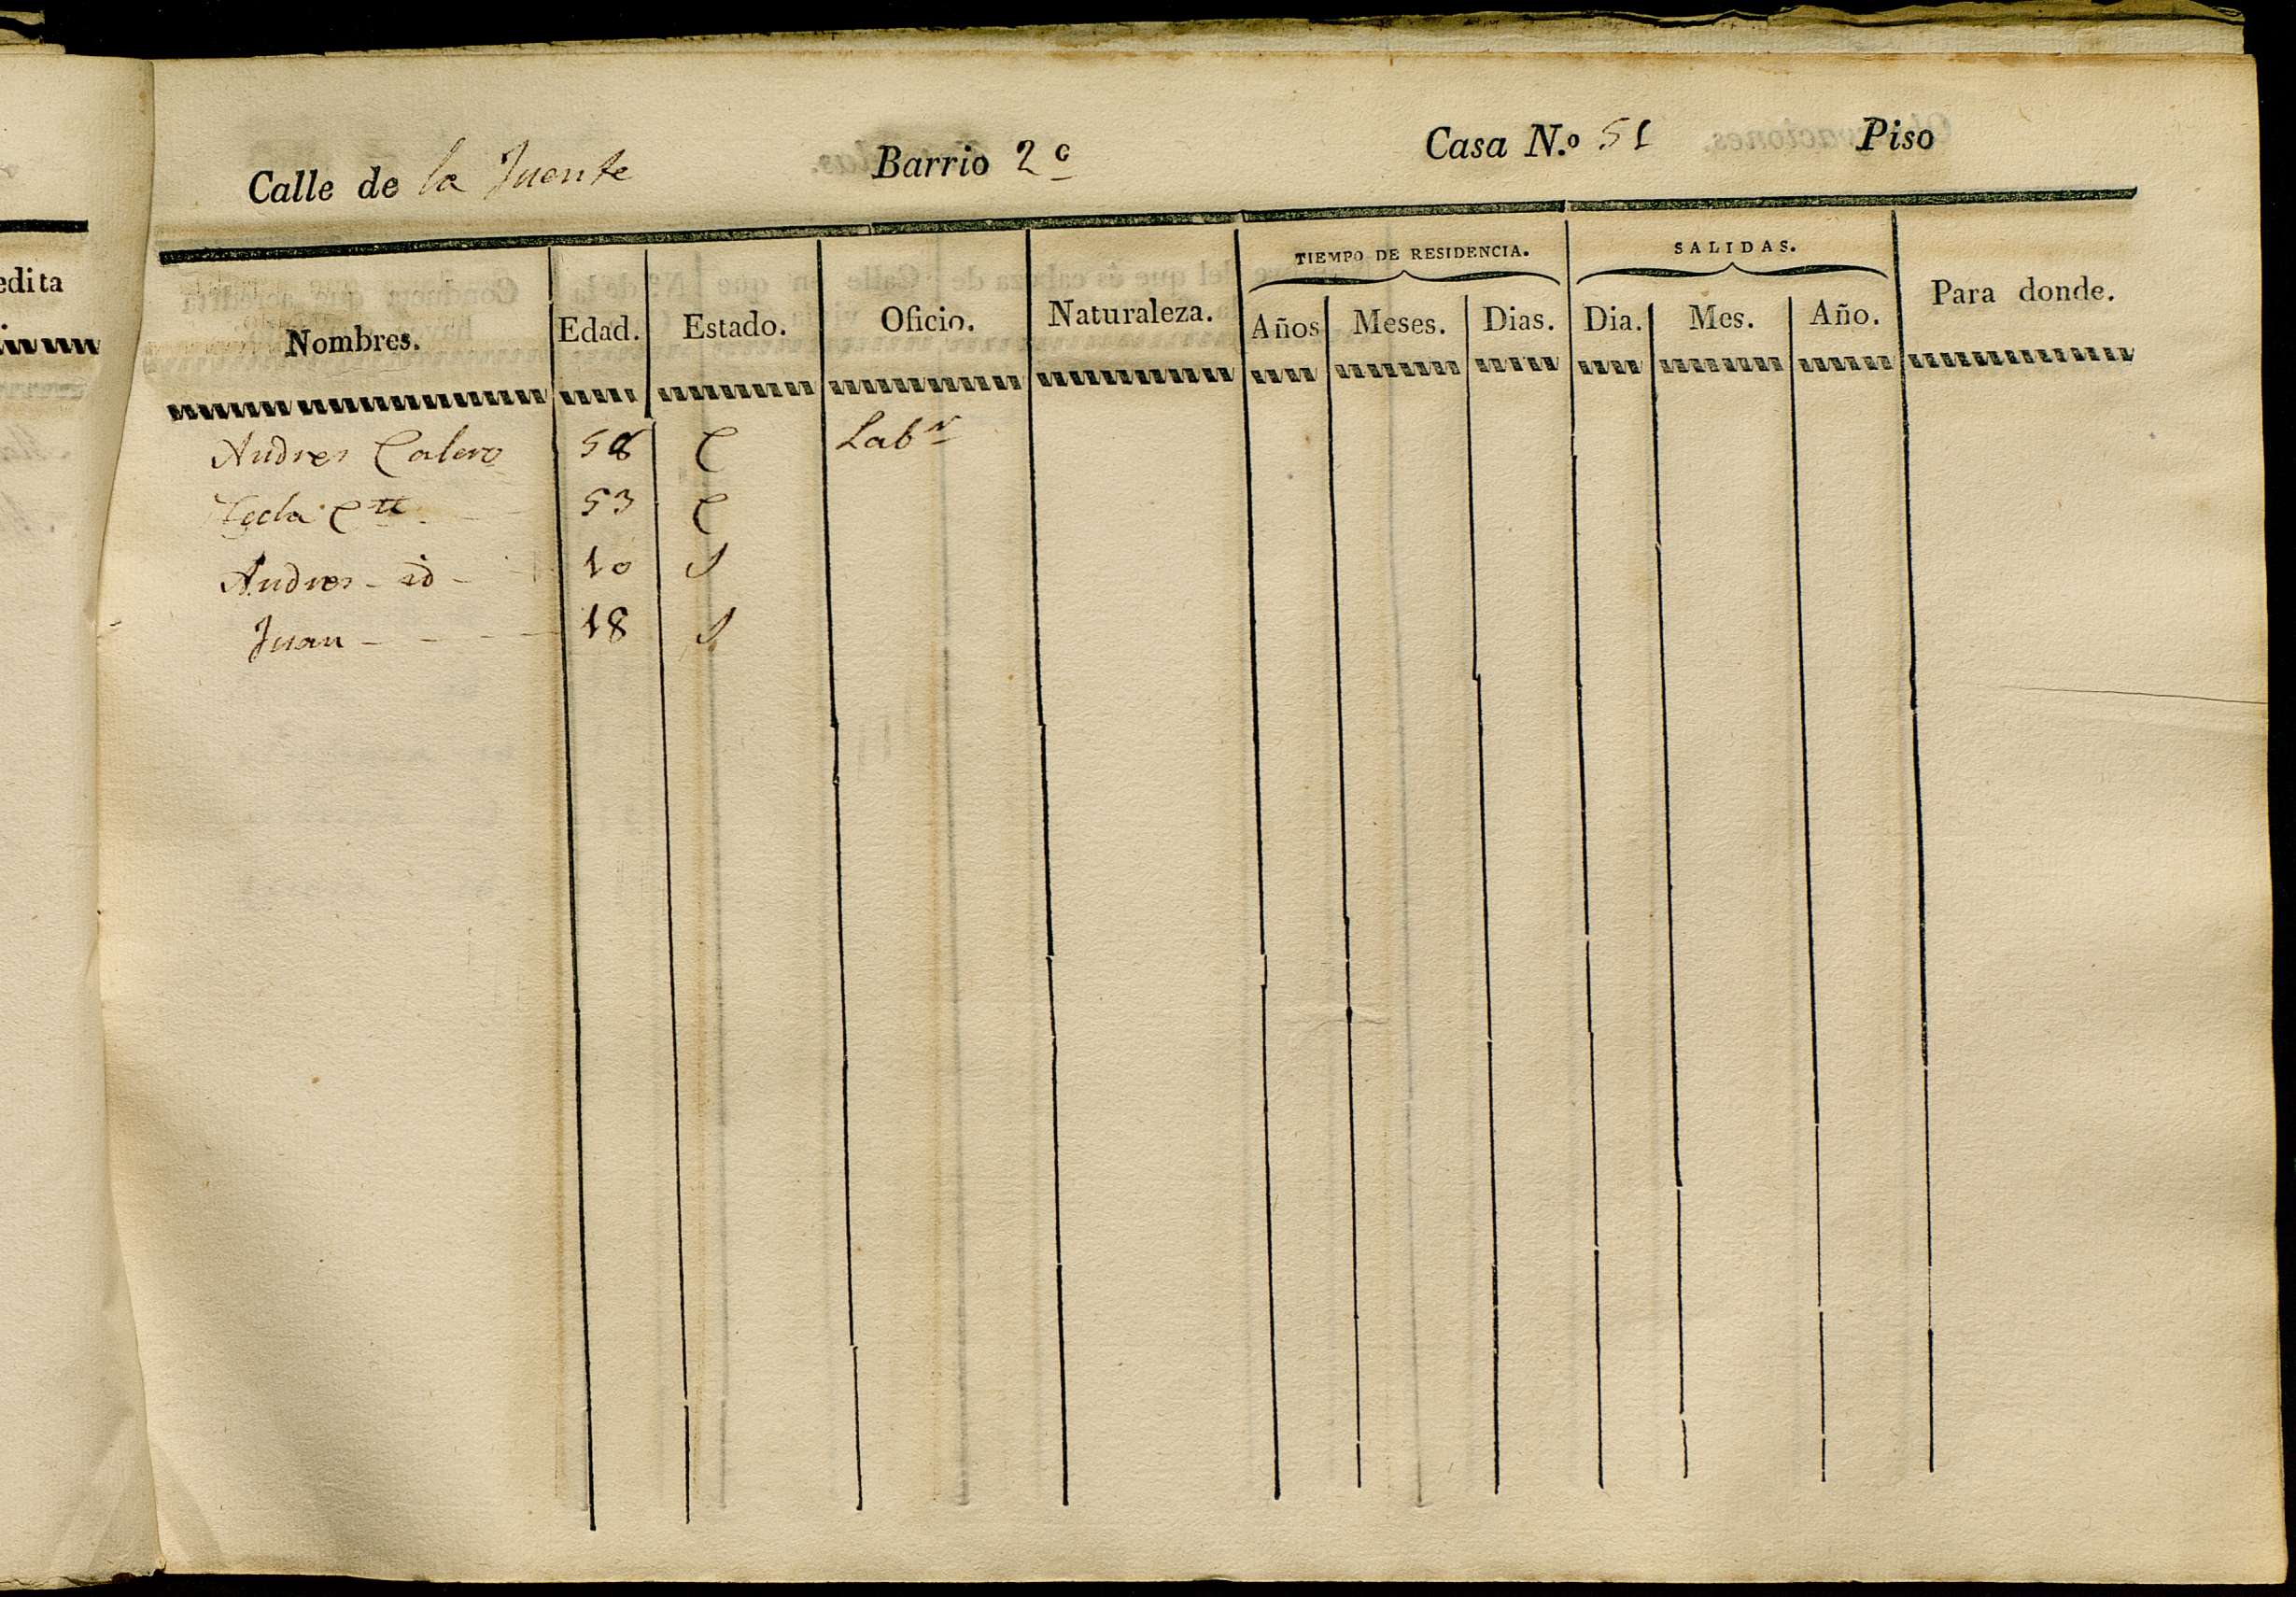 Calle de la Fuente Barrio 2º Casa N.º 51 Piso
edita
TIEMPO DE RESIDENCIA. SALIDAS.
Nombres. Edad. Estado. Oficio. Naturaleza. Años Meses. Dias. Dia. Mes. Año. Para donde.
Andres Calero 58 C Lab.r
Tecla C.te 53 C
Andres - id - 10 S
Juan - - - - 18 S